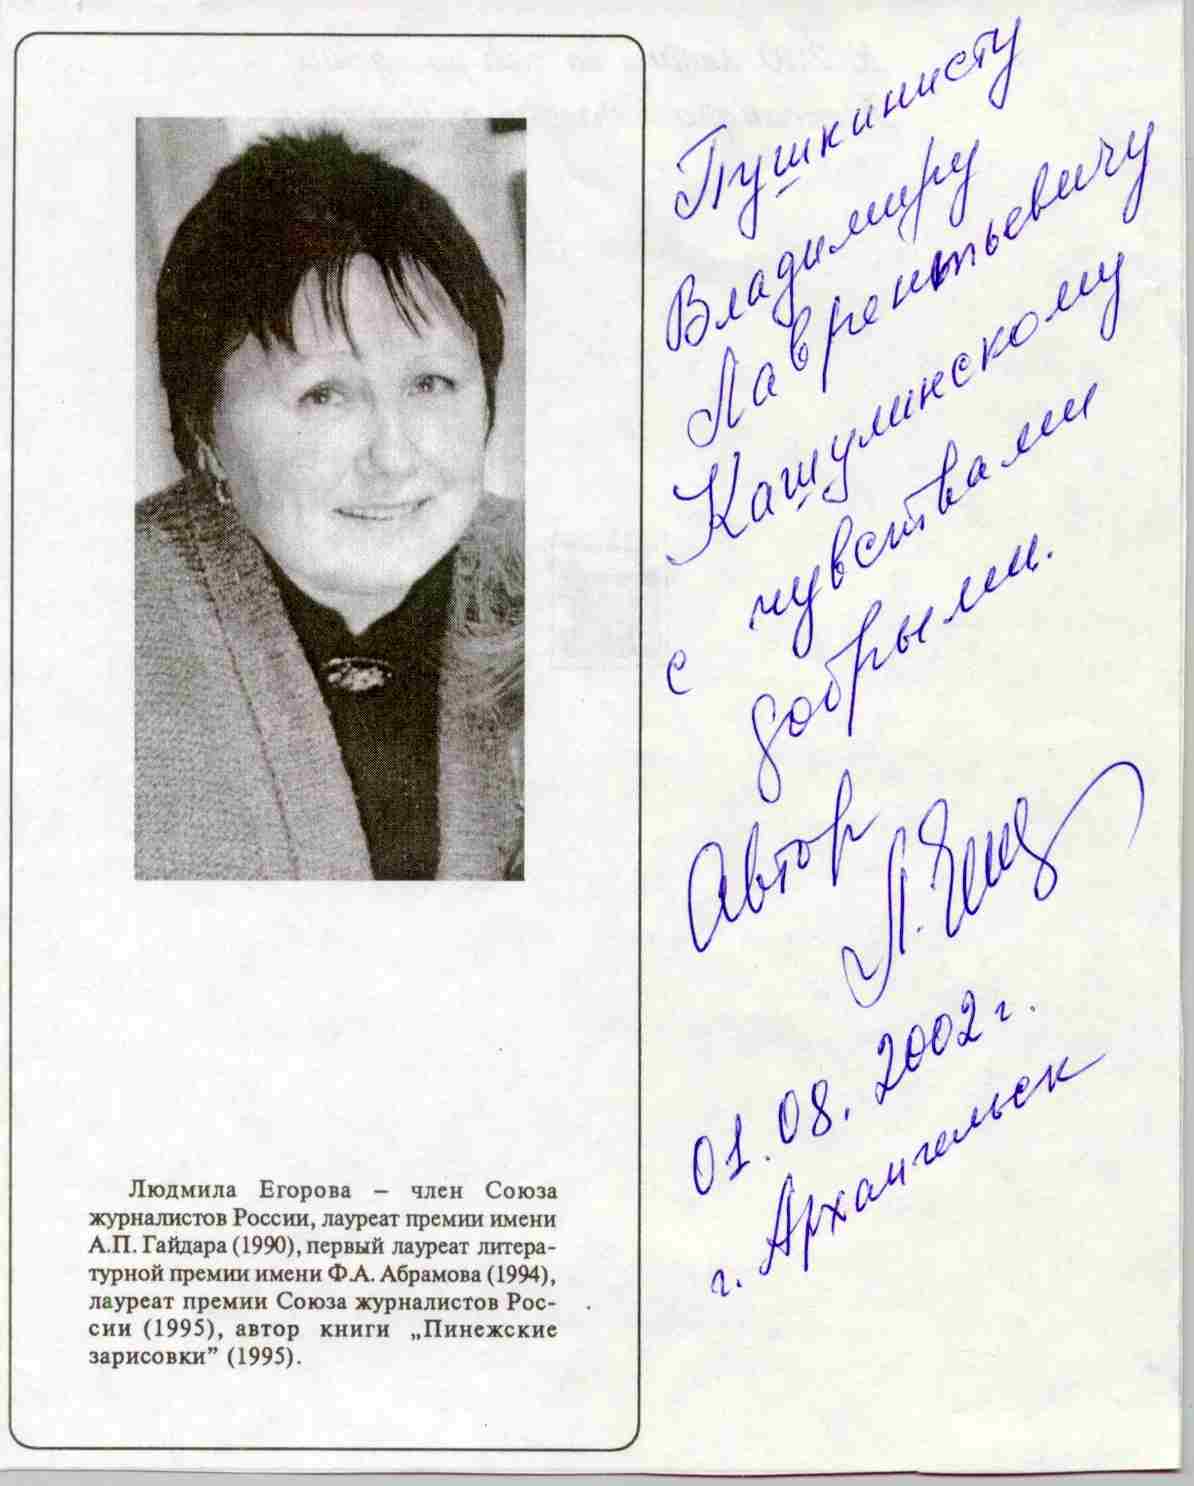 Людмила Егорова – член Союза
журналистов России, лауреат премии имени
А.П. Гайдара (1990), первый лауреат литера-
турной премии имени Ф.А. Абрамова (1994),
лауреат премии Союза журналистов Рос-
сии (1995), автор книги „Пинежские
зарисовки” (1995).
Пушкинисту
Владимиру
Лаврентьевичу
Кашулинскому
с чувствами
добрыми.
Автор
Л.
01.08.2002 г.
г. Архангельск